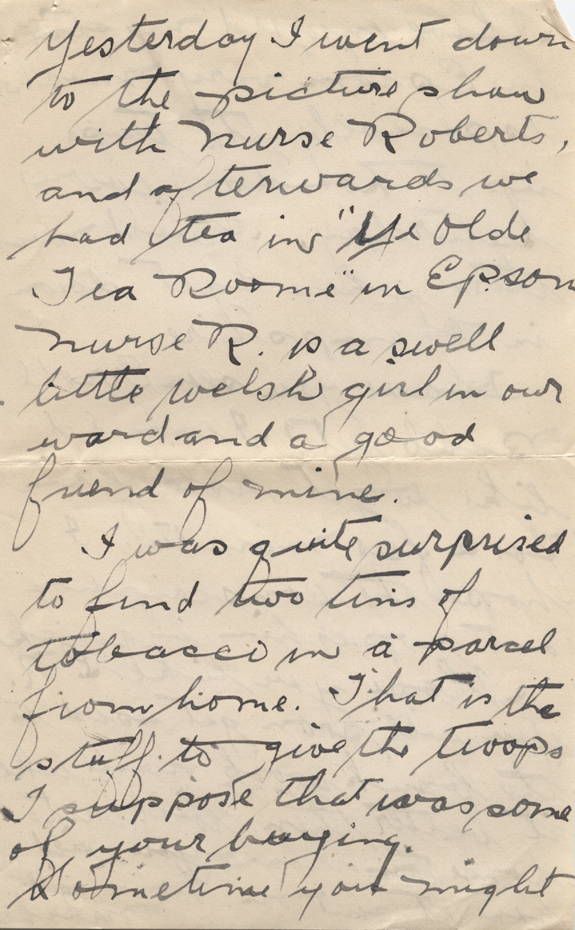 Yesterday I went down
to the picture show
with Nurse Roberts,
and afterwards we
had tea in "Ye Olde
Tea Roome" in Epsom
Nurse R. is a swell
little welsh girl in our
ward and a good
friend of mine.
I was quite surprised
to find two tins of
tobacco in a parcel
from home. That is the
stuff to give the troops
I suppose that was some
of your buying.
Sometime you might